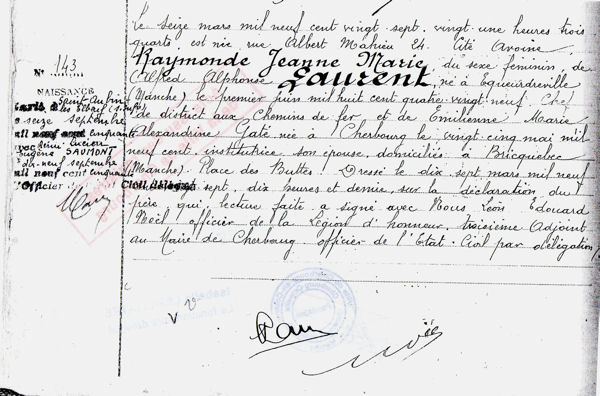 Le seize mars mil neuf cent vingt sept, vingt une heures trois
quarts, est née rue Albert Mahieu 24, Cité Avoine,
Raymonde Jeanne Marie, du sexe féminin, de
Alfred Alphonse Laurent, né à Equeurdreville
(Manche) le premier juin mil huit cent quatre vingt neuf, Chef
de district aux Chemins de fer et de Emilienne Marie
Alexandrine Gaté née à Cherbourg le vingt cinq mai mil
neuf cent, institutrice son épouse, domiciliés à Bricquebec
(Manche) Place des Buttes! Dressé le dix sept mars mil neuf
sept, dix heures et demie, sur la déclaration du
père, qui, lecture faite a signé avec Nous, Léon Edouard
Noël officier de la Légion d'honneur, troisième Adjoint
au Maire de Cherbourg officier de l'Etat-Civil par délégation,
N° 143
NAISSANCE
Saint-Aubin
seize septembre
mil neuf cent cinquante
avec Lucien
Eugène SAUMONT
dix-neuf septembre
mil neuf cent cinquante
L'Officier Civil délégué